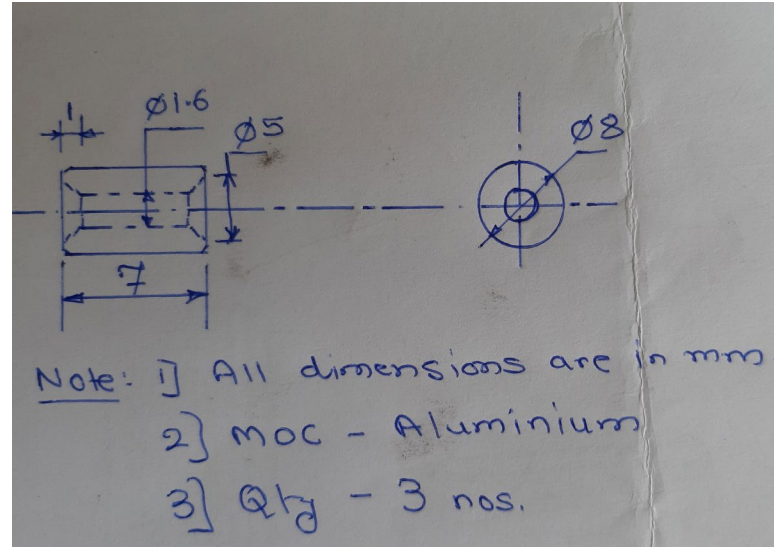 1
Ø1.6
Ø5
Ø8
7
Note: 1] All dimensions are in mm
2] MOC - Aluminium
3] Qty - 3 nos.